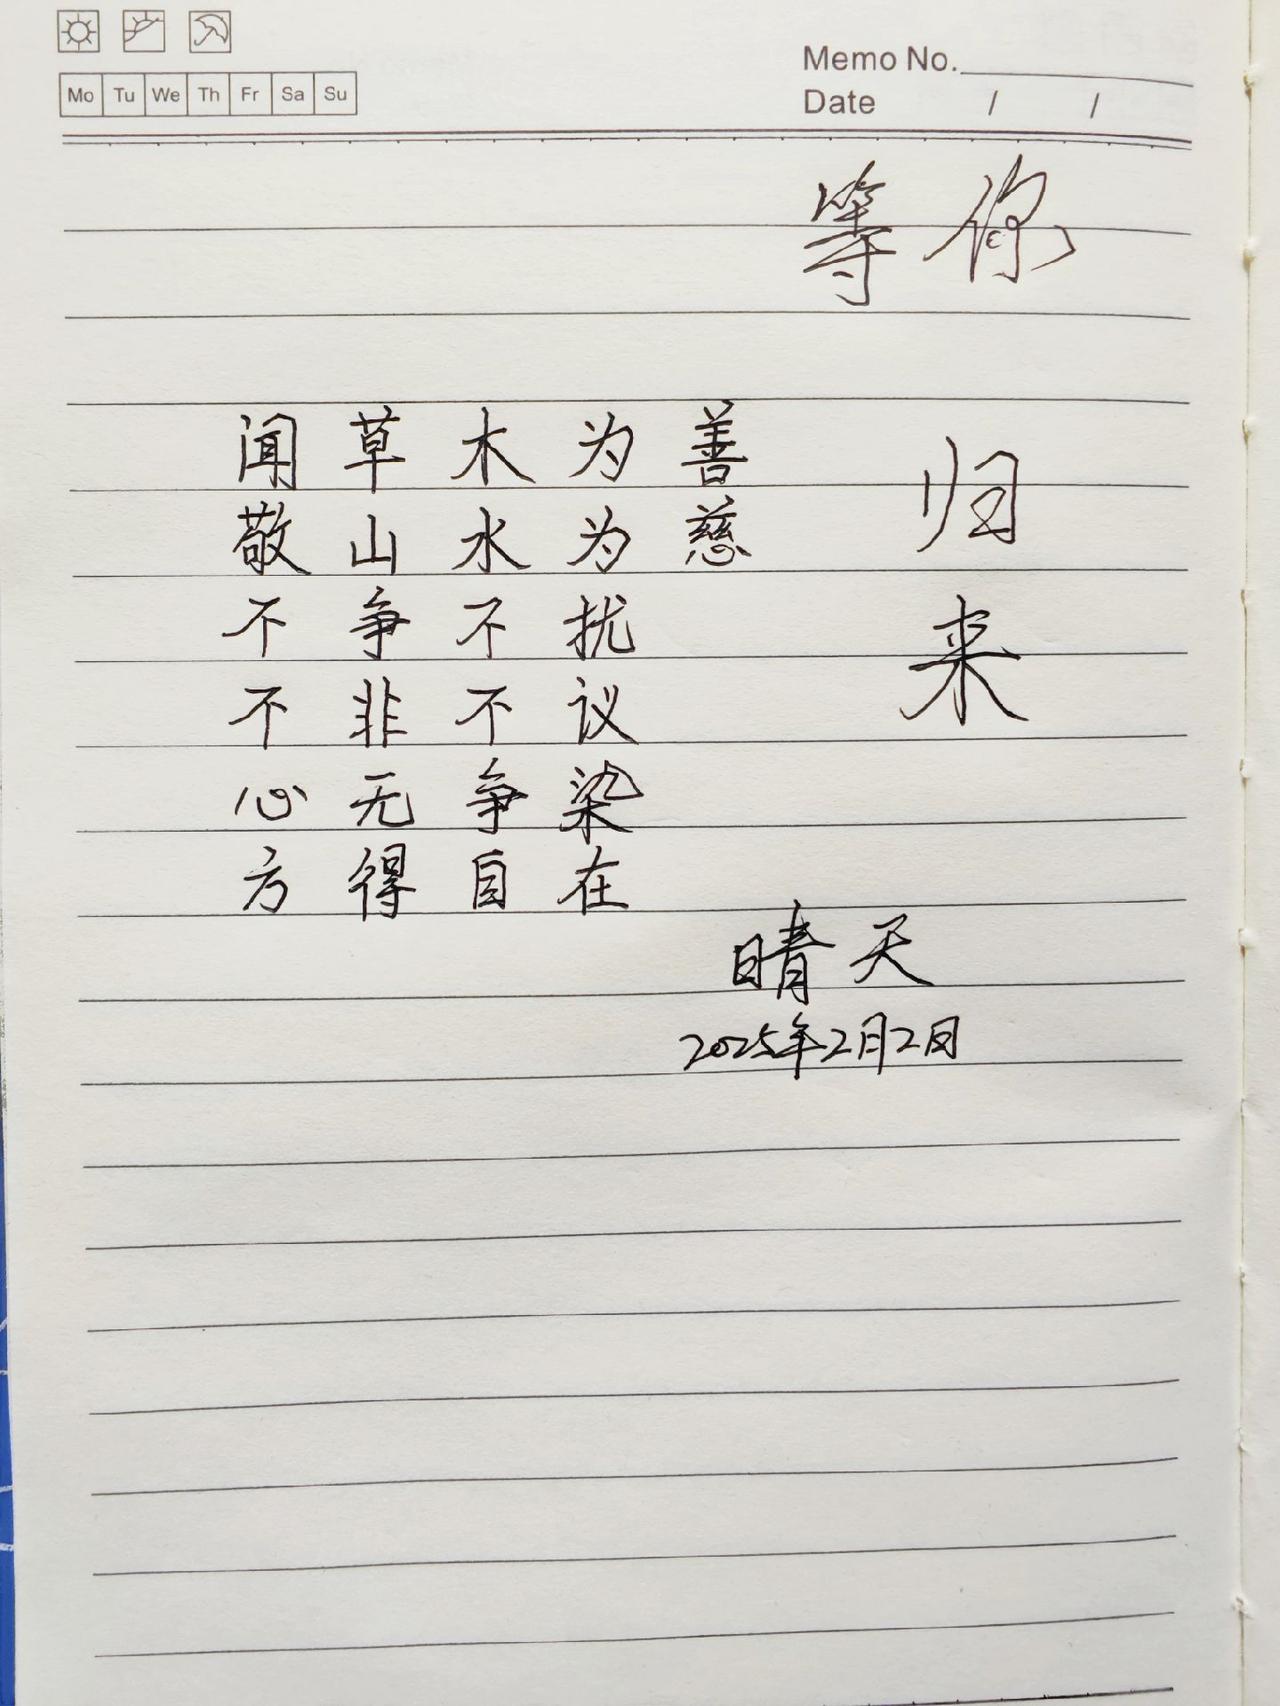 Mo Tu We Th Fr Sa Su
Memo No.
Date / /
等你
归
来
闻草木为善
敬山水为慈
不争不扰
不非不议
心无争染
方得自在
晴天
2025年2月2日